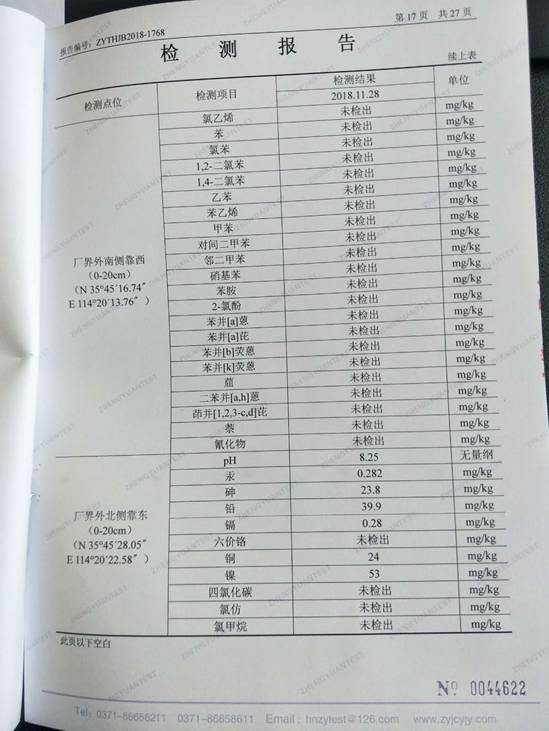 报告编号: ZYTHJB2018-1768
第 17 页 共 27 页
检 测 报 告
续上表
检测点位 检测项目 检测结果 单位
2018.11.28
厂界外南侧靠西
(0-20cm)
(N 35°45´16.74″
E 114°20´13.76″)
氯乙烯 未检出 mg/kg
苯 未检出 mg/kg
氯苯 未检出 mg/kg
1,2-二氯苯 未检出 mg/kg
1,4-二氯苯 未检出 mg/kg
乙苯 未检出 mg/kg
苯乙烯 未检出 mg/kg
甲苯 未检出 mg/kg
对间二甲苯 未检出 mg/kg
邻二甲苯 未检出 mg/kg
硝基苯 未检出 mg/kg
苯胺 未检出 mg/kg
2-氯酚 未检出 mg/kg
苯并[a]蒽 未检出 mg/kg
苯并[a]芘 未检出 mg/kg
苯并[b]荧蒽 未检出 mg/kg
苯并[k]荧蒽 未检出 mg/kg
䓛 未检出 mg/kg
二苯并[a,h]蒽 未检出 mg/kg
茚并[1,2,3-c,d]芘 未检出 mg/kg
萘 未检出 mg/kg
氰化物 未检出 mg/kg
厂界外北侧靠东
(0-20cm)
(N 35°45´28.05″
E 114°20´22.58″)
pH 8.25 无量纲
汞 0.282 mg/kg
砷 23.8 mg/kg
铅 39.9 mg/kg
镉 0.28 mg/kg
六价铬 未检出 mg/kg
铜 24 mg/kg
镍 53 mg/kg
四氯化碳 未检出 mg/kg
氯仿 未检出 mg/kg
氯甲烷 未检出 mg/kg
此页以下空白
№ 0044622
Tel: 0371-86658211 0371-86658611 Email: hnzytest@126.com www.zyjcyjy.com
ZHENGYUANTEST